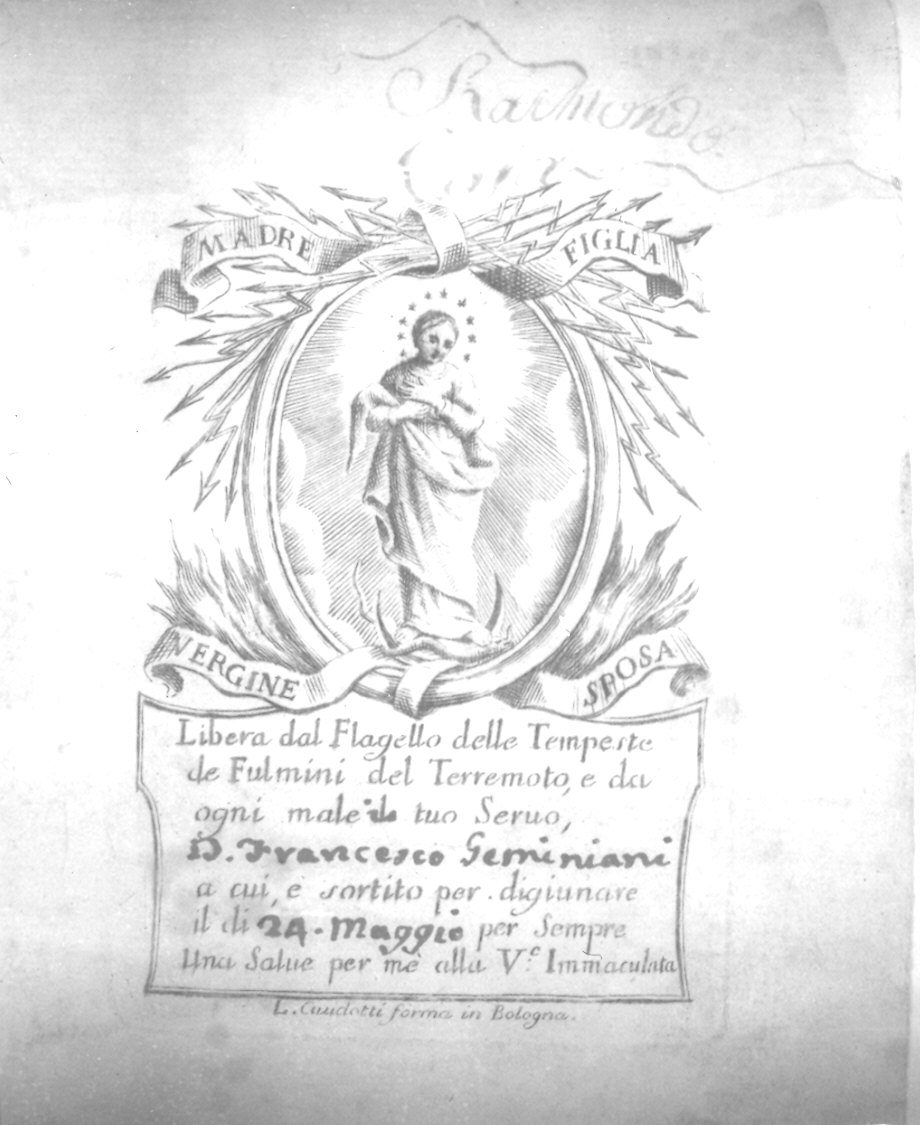 Raimondo
MADRE FIGLIA
VERGINE SPOSA
Libera dal Flagello delle Tempeste
de Fulmini del Terremoto, e da
ogni male il tuo Seruo,
D. Francesco Geminiani
a cui, e sortito per digiunare
il di 24. Maggio per Sempre
Una Salue per me alla V.e Immaculata
L. forma in Bologna.